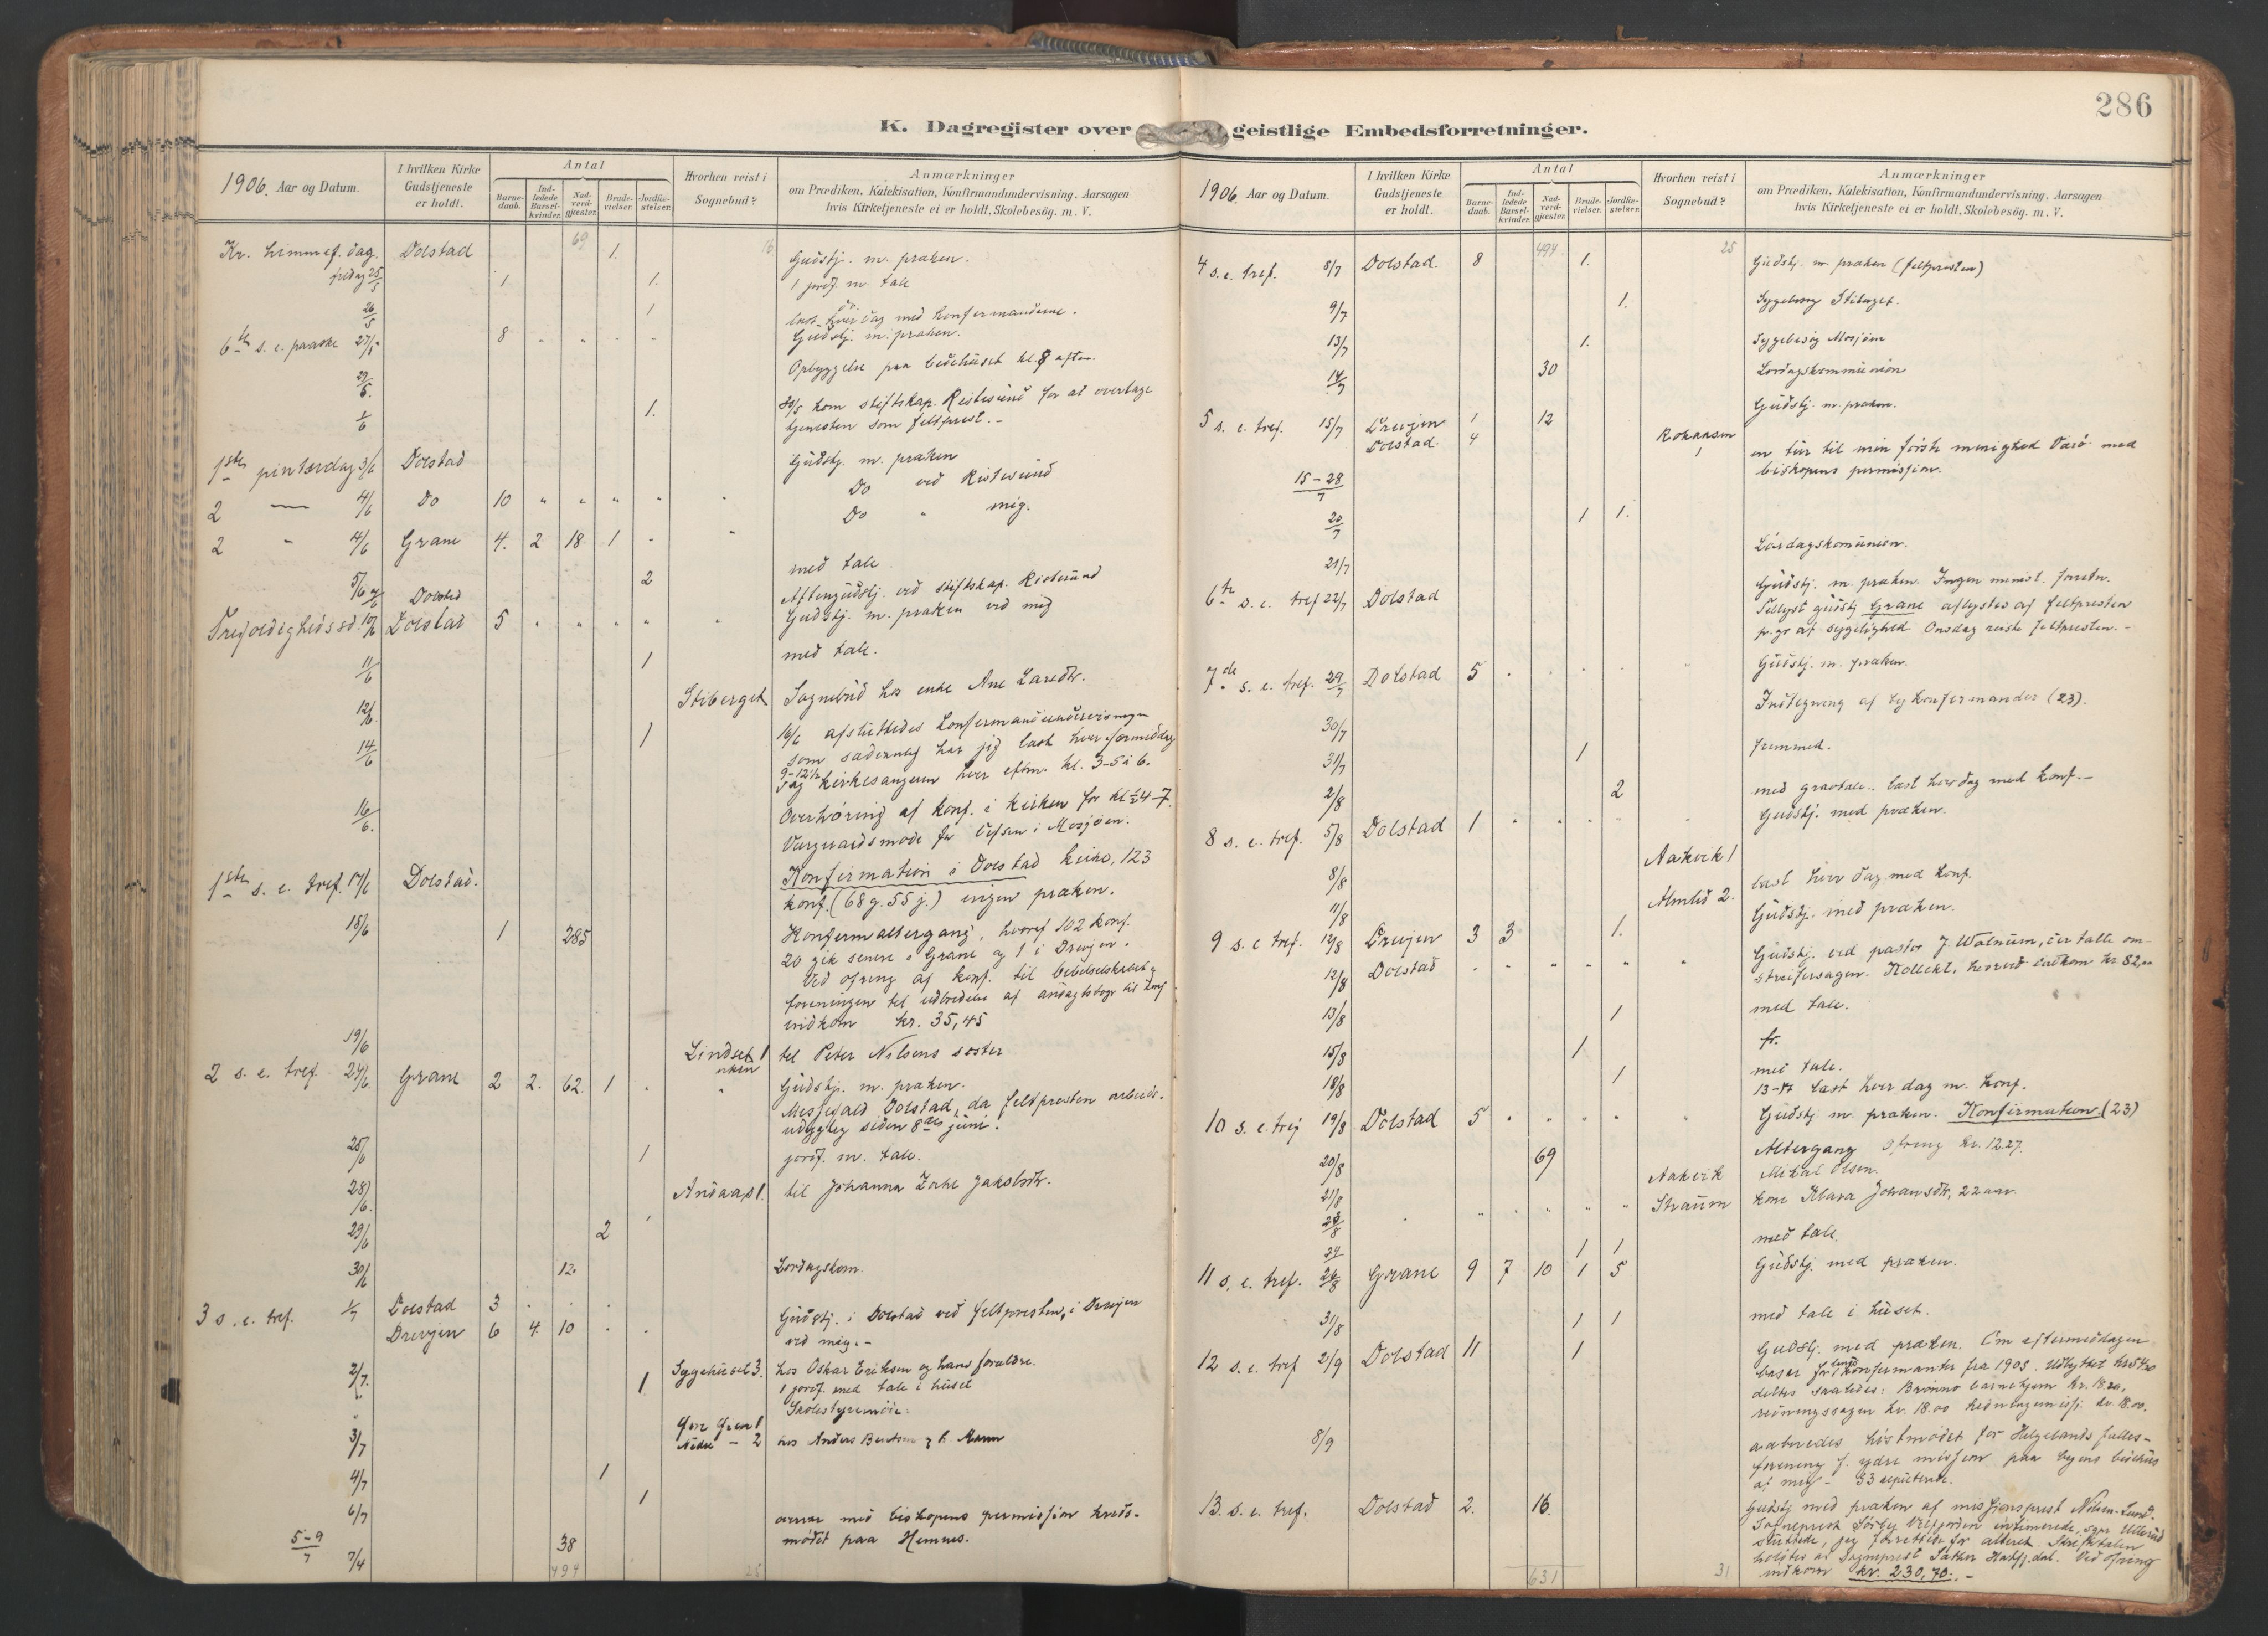 286
K. Dagregister over geistlige Embedsforretninger.
1906. Aar og Datum.
I hvilken Kirke Gudstjeneste er holdt.
Antal
Barnedaab.
Indledede Barselkvinder.
Nadverdgjæster.
Brudevielser.
Jordfæstelser.
Hvorhen reist i Sognebud?
Anmærkninger
om Prædiken, Katekisation, Konfirmandundervisning, Aarsagen
hvis Kirketjeneste ei er holdt, Skolebesøg. m. V.
69 16
Kr. himmelf. dag. Dolstad 1. Gudstj. m. præken.
fredag 25/5 1 1. 1 jordf. m. tale
26/5 1 læst hver dag med konfirmanderne.
6te s. e. paaske 27/5 8 " " " " Gudstj. m. præken.
Opbyggelse paa bedehuset kl. 8 aften.
29/5. 30/5 kom stiftskap. Ristesund for at overtage
1/6 1. tjenesten som feltprest. -
1ste pintsedag 3/6 Dolstad Gudstj. m. præken
2 — 4/6 Do 10 " " " " " Do ved Ristesund
2 " 4/6 Grane 4. 2 18 1 " " Do " mig.
5/6 2 med tale.
Dolstad Aftengudstj. ved stiftskap. Ristesund
Trefoldighedssd. 10/6 Dolstad 5 " " " " " Gudstj. m. præken ved mig
11/6 1 med tale.
12/6. Stiberget Sognebud hos enke Ane Larsdtr.
14/6 1 16/6 afsluttedes konfirmandundervisningen
som sædvanlig har jeg læst hver formiddag
9-12½ og kirkesangeren hver efterm. kl. 3-5 à 6.
16/6. Overhøring af konf. i kirken for kl ½4-7.
Vergeraadsmøde for Vefsen i Mosjøen.
1ste s. e. tref. 17/6 Dolstad. Konfirmation i Dolstad kirke, 123
konf. (68 g. 55 j.) ingen præken.
18/6 1 285 Konfirmaltergang, hvoraf 102 konf.
20 gik senere i Grane og 1 i Drevjen.
Ved ofring af konf. til bibelselskabet &
foreningen til udbredelse af andagtsbøger til konf
indkom kr. 35,45
19/6 Lindset 1 til Peter Nilsens søster
2 s. e. tref. 24/6 Grane 2 2. 62. 1 " " Gudstj. m. præken.
Messefald Dolstad, da feltpresten arbeids-
udygtig siden 8de juni.
25/6 1 jordf. m. tale.
28/6. Andaas 1. til Johanna Jakobsdtr.
29/6 2
30/6 12. Lørdagskom.
3 s. e. tref. 1/7 Dolstad 3 " " " Gudstj. i Dolstad ved feltpresten, i Drevjen
Drevjen 6 4 10 " " ved mig. -
2/7. Sygehuset 3. hos Oskar Eriksen og hans forældre.
" 1 1 jordf. med tale i huset
" Skolestyremøde.
3/7 Nedre - 2 hos Anders
4/7 1
6/7 1
5-9/7 med biskopens permission kreds-
7/4 38 mødet paa Hemnes.
494 25
1906. Aar og Datum.
I hvilken Kirke Gudstjeneste er holdt.
Antal
Barnedaab.
Indledede Barselkvinder.
Nadverdgjæster.
Brudevielser.
Jordfæstelser.
Hvorhen reist i Sognebud?
Anmærkninger
om Prædiken, Katekisation, Konfirmandundervisning, Aarsagen
hvis Kirketjeneste ei er holdt, Skolebesøg. m. V.
494 25
4 s. e. tref. 8/7 Dolstad. 8 1. Gudstj. m. præken (feltpresten)
9/7 1. Sygebesøg
13/7 1. Sygebesøg Mosjøen
14/7 30 Lørdagskommunion
5 s. e. tref. 15/7 Drevjen 1 12 Gudstj. m. præken.
Dolstad. 4
15-28/7 en tur til min første menighed med
biskopens permission.
20/7 1 1.
21/7 Lørdagskomunion.
6te s. e. tref 22/7 Dolstad Gudstj. m. præken. Ingen minist. forretn.
Tillyst gudstj Grane aflystes af feltpresten
p. gr. af sygelighed. Onsdag reiste feltpresten. -
7de s. e. tref. 29/7 Dolstad 5 " " " " " Gudstj. m. præken.
30/7 Indtegning af bykonfirmander (23).
31/7 1 fremmed.
2/8 2 med gravtale. læst hver dag med konf. -
8 s. e. tref. 5/8 Dolstad 1 " " " " " Gudstj. med præken.
8/8 Aakvik 1
11/8 Almlid 2. læst hver dag med konf.
9 s. e tref. 12/8 Drevjen 3 3 1. Gudstj. med præken.
12/8 Dolstad " " " " " " Gudstj. ved pastor J. Walnum, der talte om
streifersagen. Kollekt, hvorved indkom kr. 82,00
13/8 1 med tale.
15/8 1 fr.
18/8 1 med tale.
13-17 læst hver dag m. konf.
10 s. e. tref 19/8 Dolstad 5 " " " " " Gudstj. m. præken. Konfirmation (23)
20/8 69 Altergang ofring kr. 12.27.
21/8 Aakvik Mikal Olsen.
23/8 " " " " " Straum kone Klara Johansdtr, 22 aar.
24 1 1 med tale.
11 s. e. tref. 26/8 Grane 9 7 10 1 5 Gudstj. med præken.
31/8 1 1 med tale i huset.
12 s. e. tref 2/9 Dolstad 11 1 Gudstj. med præken. Om eftermiddagen
basar for konfirmanter fra 1905. Udbyttet
deltes saaledes: Brønnø barnehjem kr. 18.00,
redningssagen kr. 18.00 hedningemissj. kr. 18.00.
8/9 aabnedes høstmødet for Helgelands fælles-
forening f. ydre mission paa byens bedehus
af mig - 33 deputerede.
13. s. e. tref. Dolstad 2. 16. Gudstj med præken af missionsprest Nilsen-Lund.
Sogneprest intimerede, sgpr.
sluttede, jeg forrettede for alteret. Skriftetalen
holdtes af Sogneprest Hatfj.dal. Ved ofring
indkom kr. 230,70. -
631 31